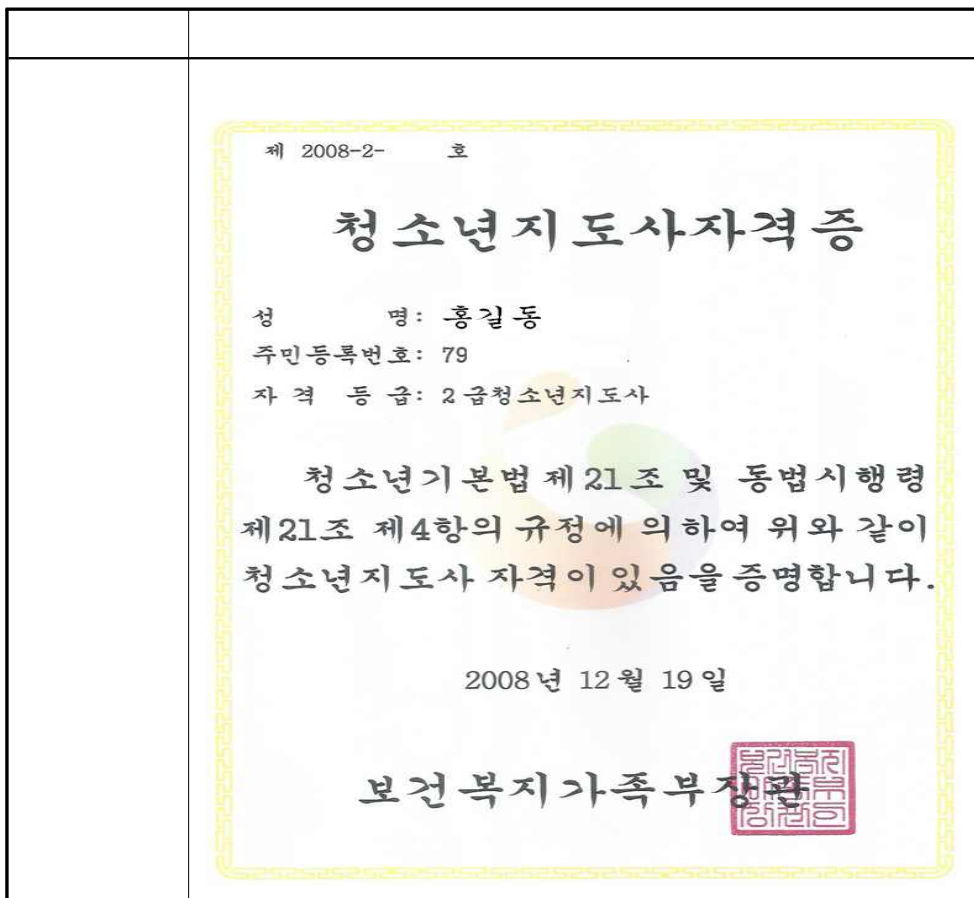 제 2008-2- 호
청소년지도사자격증
성 명: 홍길동
주민등록번호: 79
자 격 등 급: 2급청소년지도사
청소년기본법 제21조 및 동법시행령
제21조 제4항의 규정에 의하여 위와 같이
청소년지도사 자격이 있음을 증명합니다.
2008년 12월 19일
보건복지가족부장관